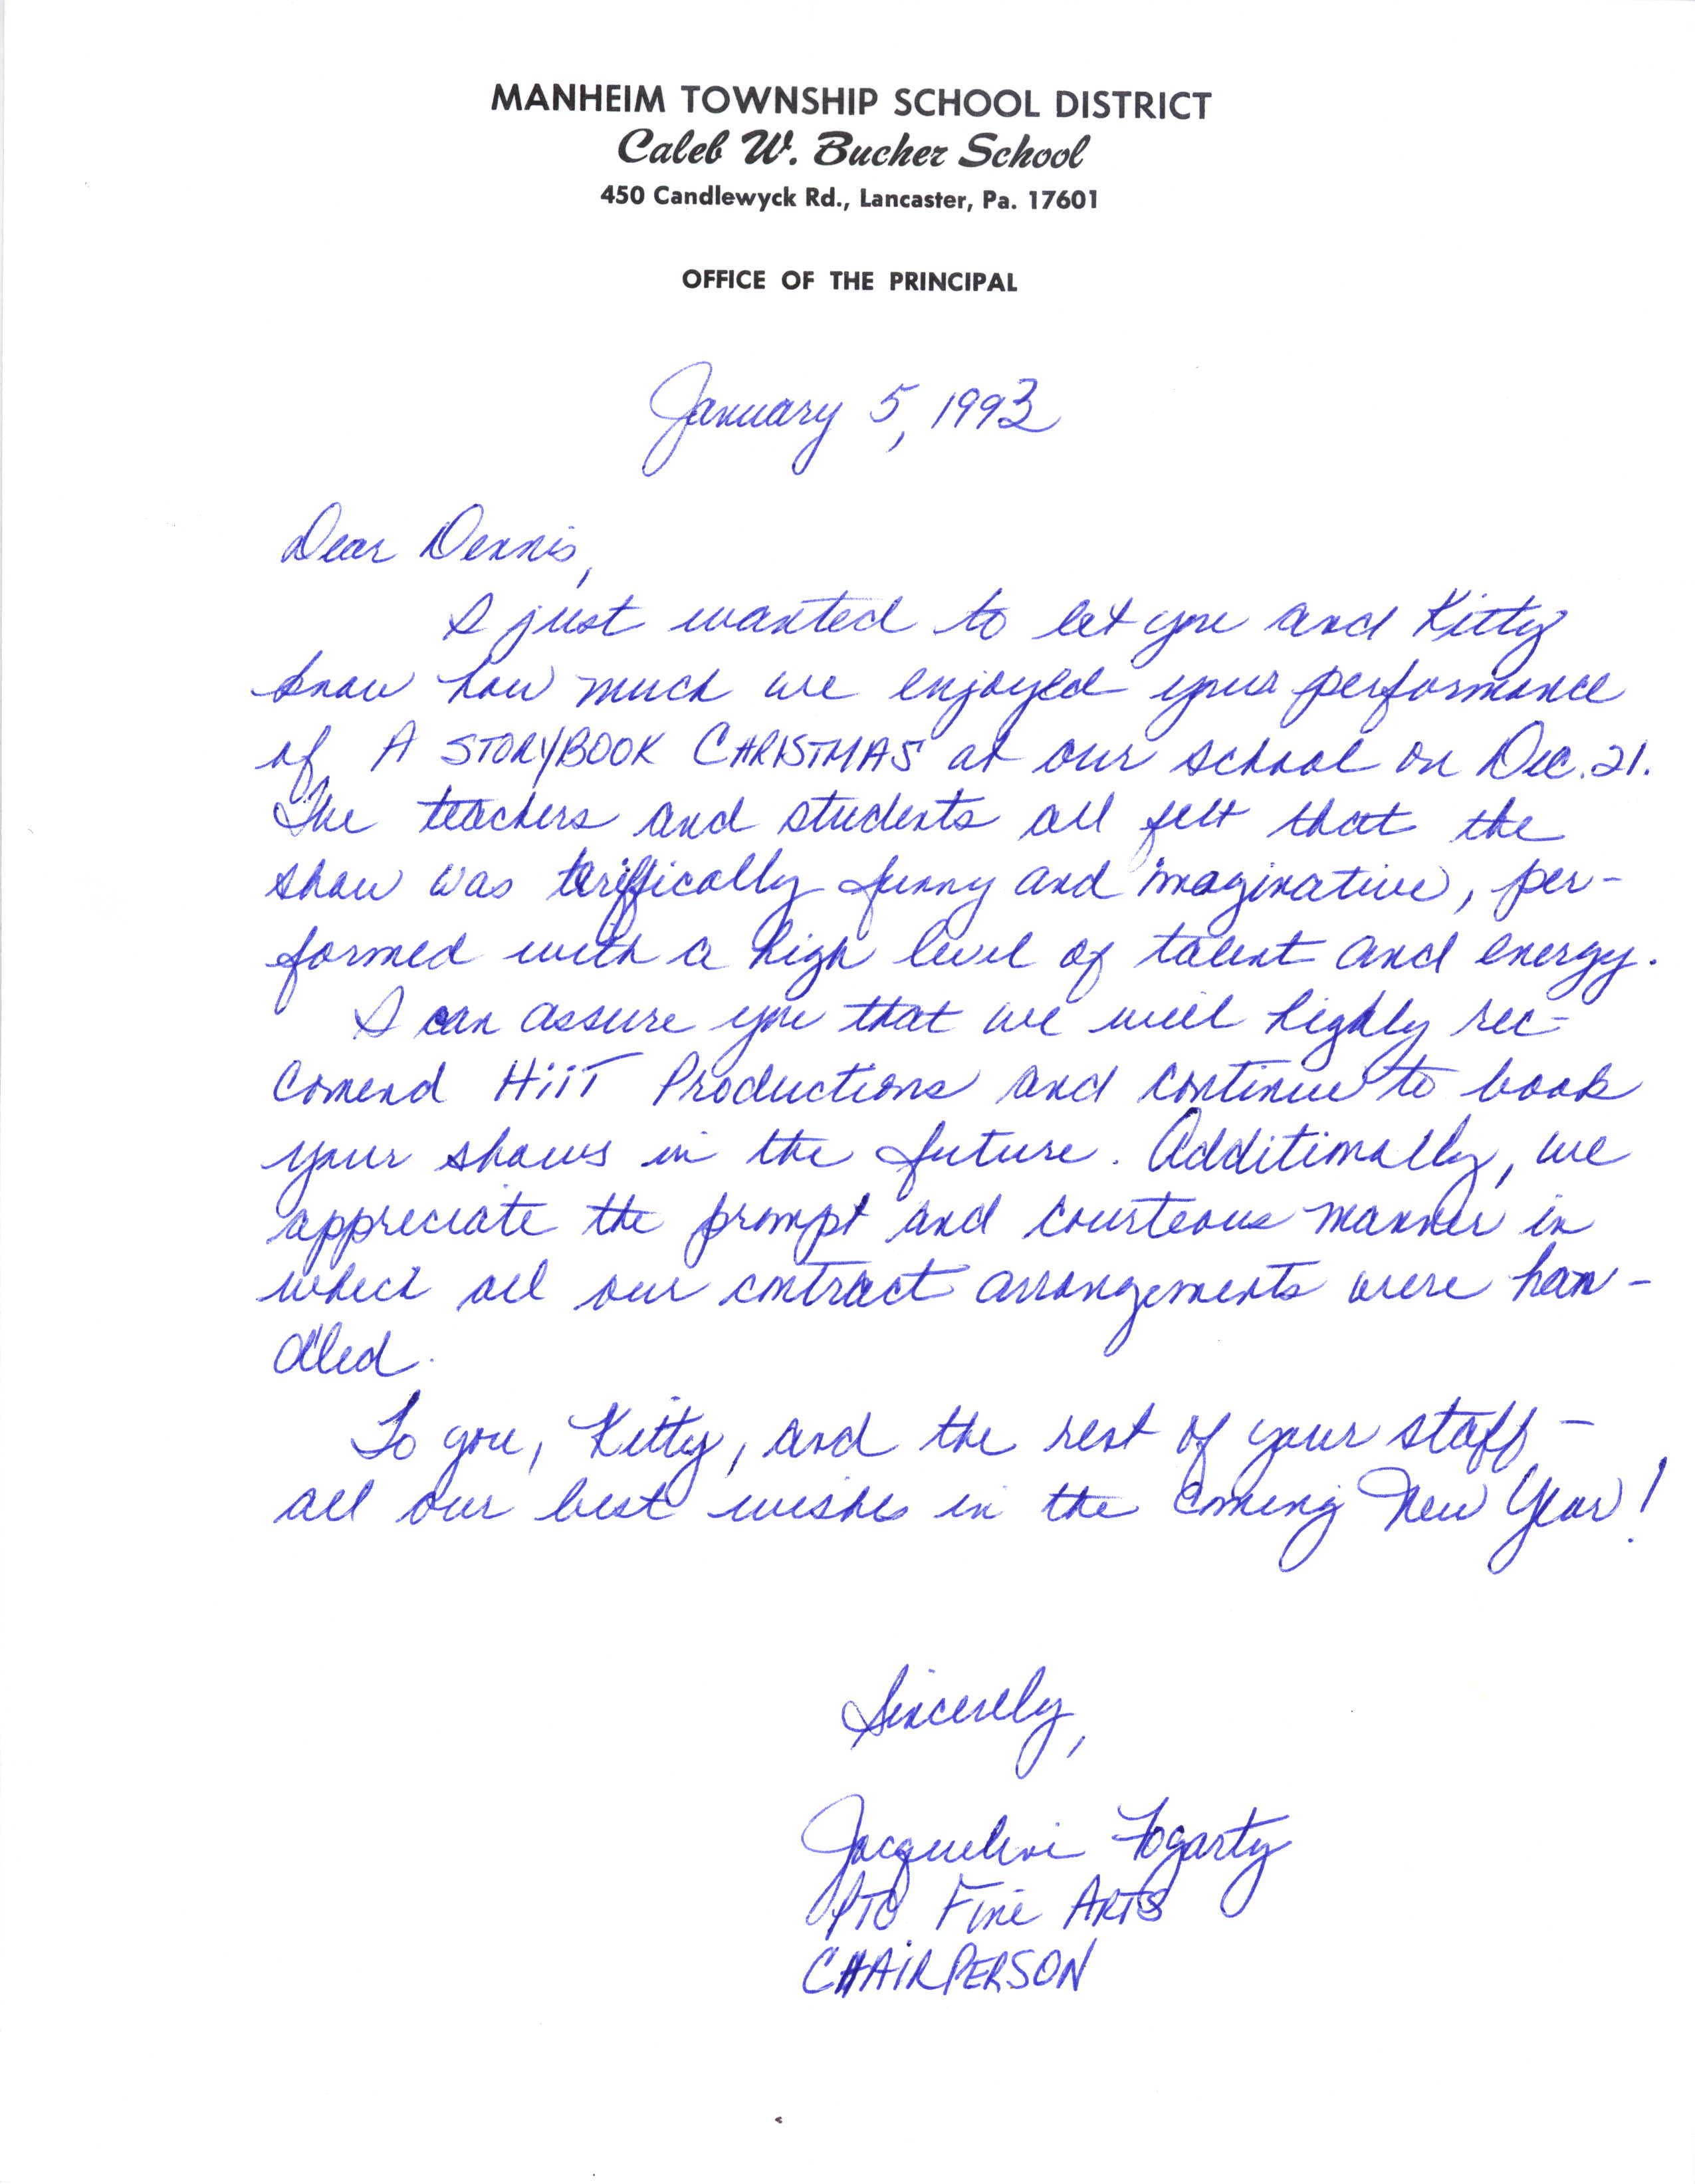 MANHEIM TOWNSHIP SCHOOL DISTRICT
Caleb W. Bucher School
450 Candlewyck Rd., Lancaster, Pa. 17601
OFFICE OF THE PRINCIPAL
January 5, 1993
Dear Dennis,
I just wanted to let you and Kitty
know how much we enjoyed your performance
of A STORYBOOK CHRISTMAS at our school on Dec. 21.
The teachers and students all felt that the
show was teriffically funny and imaginative, per-
formed with a high level of talent and energy.
I can assure you that we will highly rec-
comend HiiT Productions and continue to book
your shows in the future. Additionally, we
appreciate the prompt and courteous manner in
which all our contract arrangements were han-
dled.
To you, Kitty, and the rest of your staff -
all our best wishes in the coming New Year!
Sincerely,
Jacqueline Fogarty
PTO Fine ARTS
CHAIRPERSON